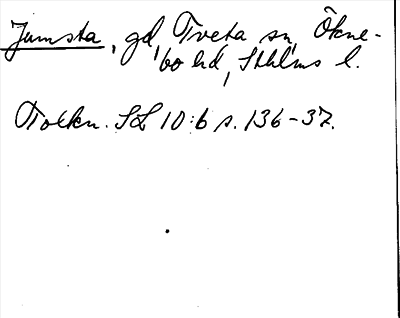 Jumsta, gd, Tveta sn, Ökne-
bo hd, Sthlms l.
Tolkn. SL 10:6 s. 136-37.